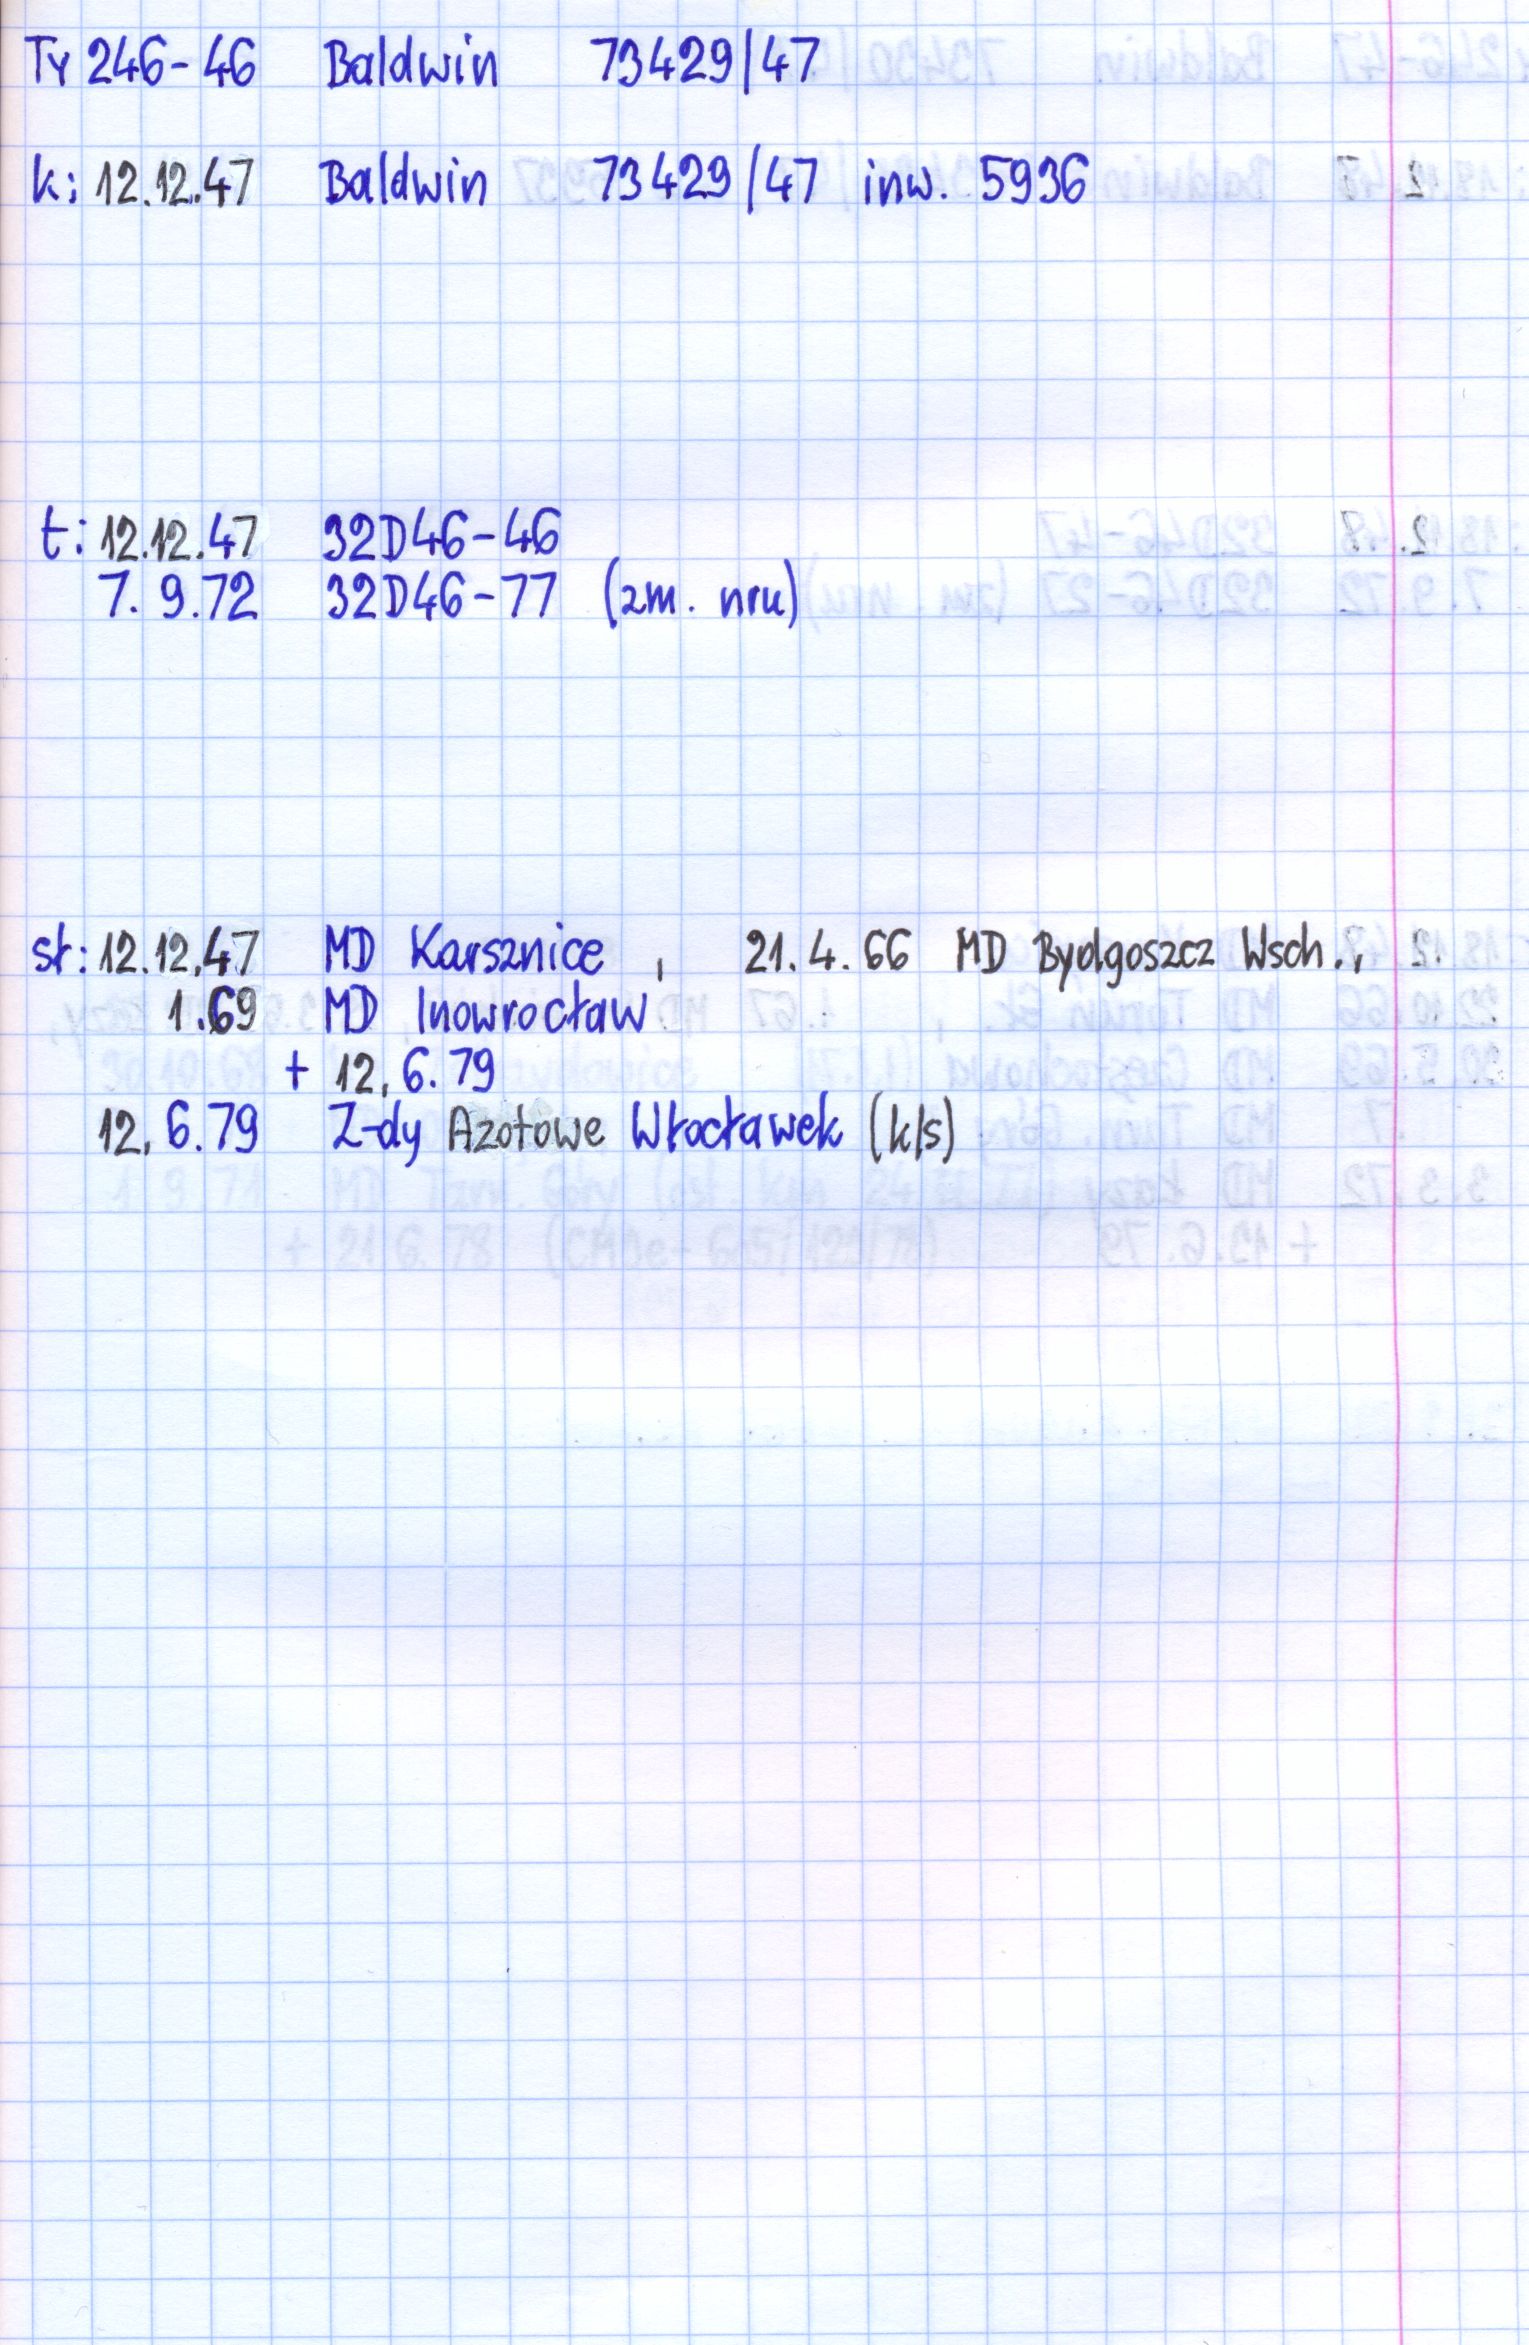 Ty 246-46 Baldwin 73429/47
k: 12.12.47 Baldwin 73429/47 inw. 5936
t: 12.12.47 32D46-46
7. 9.72 32D46-77 (zm. nru)
st: 12.12.47 MD Karsznice , 21.4.66 MD Bydgoszcz Wsch.,
1.69 MD Inowrocław
+ 12.6.79
12.6.79 Z-dy Azotowe Włocławek (k/s)